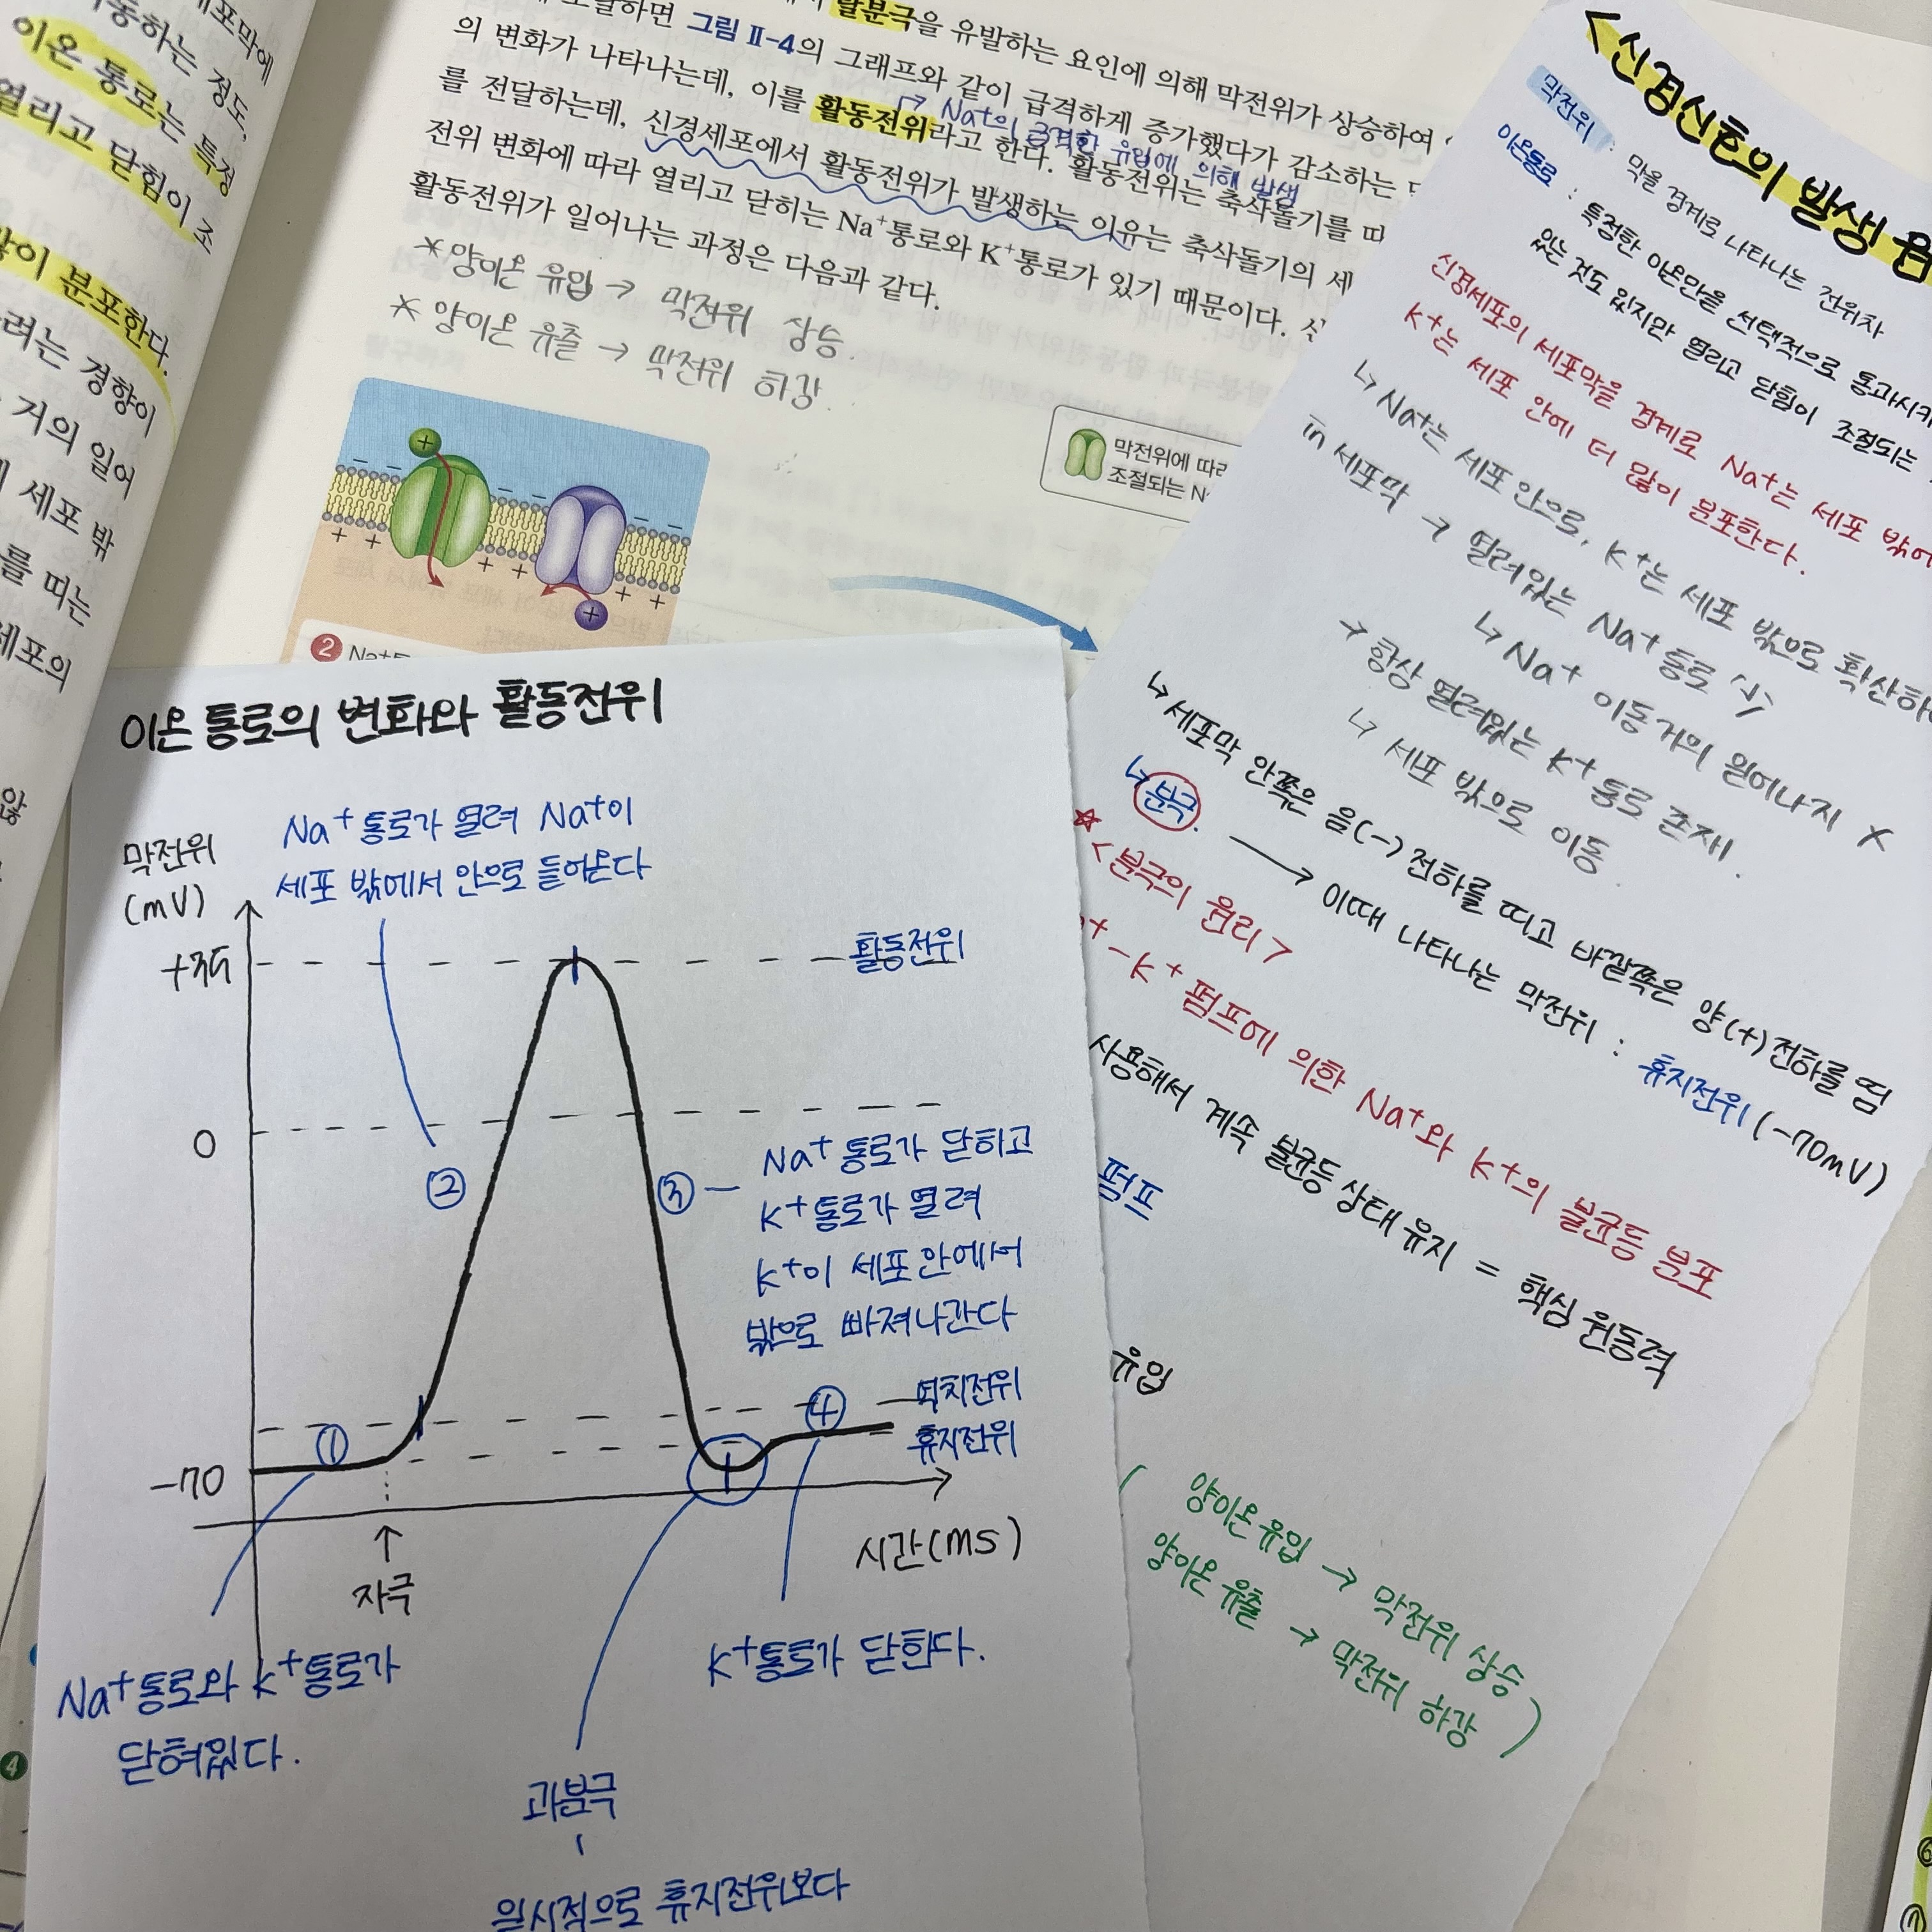 세포막에
동하는 정도,
이온 통로는 특정
열리고 닫힘이 조
많이 분포한다.
려는 경향이
거의 일어
세포 밖
를 띠는
세포의
않
탈분극을 유발하는 요인에 의해 막전위가 상승하여
도달하면 그림 Ⅱ-4의 그래프와 같이 급격하게 증가했다가 감소하는
의 변화가 나타나는데, 이를 활동전위라고 한다. 활동전위는 축삭돌기를 따
↱ Na+의 급격한 유입에 의해 발생
를 전달하는데, 신경세포에서 활동전위가 발생하는 이유는 축삭돌기의 세
전위 변화에 따라 열리고 닫히는 Na⁺통로와 K⁺통로가 있기 때문이다.
활동전위가 일어나는 과정은 다음과 같다.
* 양이온 유입 → 막전위 상승.
* 양이온 유출 → 막전위 하강.
막전위에 따라
조절되는 N
2 Na+통
<신경신호의 발생
막전위 : 막을 경계로 나타나는 전위차
이온통로 : 특정한 이온만을 선택적으로 통과시키
있는 것도 있지만 열리고 닫힘이 조절되는
신경세포의 세포막을 경계로 Na+는 세포 밖에
K+는 세포 안에 더 많이 분포한다.
↳ Na+는 세포 안으로, K+는 세포 밖으로 확산하
in 세포막 → 열려있는 Na+ 통로 小
↳ Na+ 이동 거의 일어나지 X
→ 항상 열려있는 K+ 통로 존재.
↳ 세포 밖으로 이동.
↳ 세포막 안쪽은 음(-)전하를 띠고 바깥쪽은 양(+)전하를 띰
↳ 분극. → 이때 나타나는 막전위 : 휴지전위 (-70mV)
☆ <분극의 원리>
+-K+ 펌프에 의한 Na+와 K+의 불균등 분포
사용해서 계속 불균등 상태 유지 = 핵심 원동력
펌프
유입
( 양이온 유입 → 막전위 상승
양이온 유출 → 막전위 하강 )
이온 통로의 변화와 활동전위
Na+ 통로가 열려 Na+이
세포 밖에서 안으로 들어온다
막전위
(mV)
+35
활동전위
0
②
③ — Na+ 통로가 닫히고
K+통로가 열려
K+이 세포 안에서
밖으로 빠져나간다
역치전위
④
휴지전위
①
-70
시간(ms)
↑
자극
Na+통로와 K+통로가
닫혀있다.
K+통로가 닫힌다.
과분극
일시적으로 휴지전위보다
4